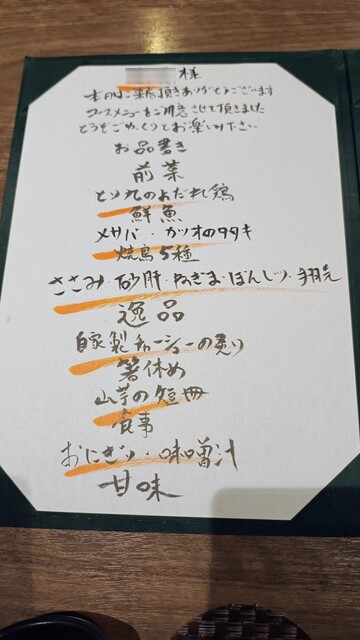 様
本日はご来店頂きありがとうございます
コースメニューをご用意させて頂きました
どうぞごゆっくりとお楽しみ下さい
お品書き
前菜
とり九のよだれ鶏
鮮魚
メサバ・カツオのタタキ
焼鳥5種
ささみ・砂肝・ねぎま・ぼんじり・手羽先
逸品
自家製チャーシューの炙り
箸休め
山芋の短冊
食事
おにぎり・味噌汁
甘味